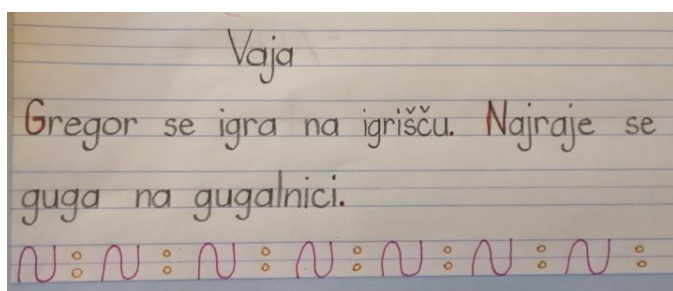 Vaja
Gregor se igra na igrišču. Najraje se
guga na gugalnici.